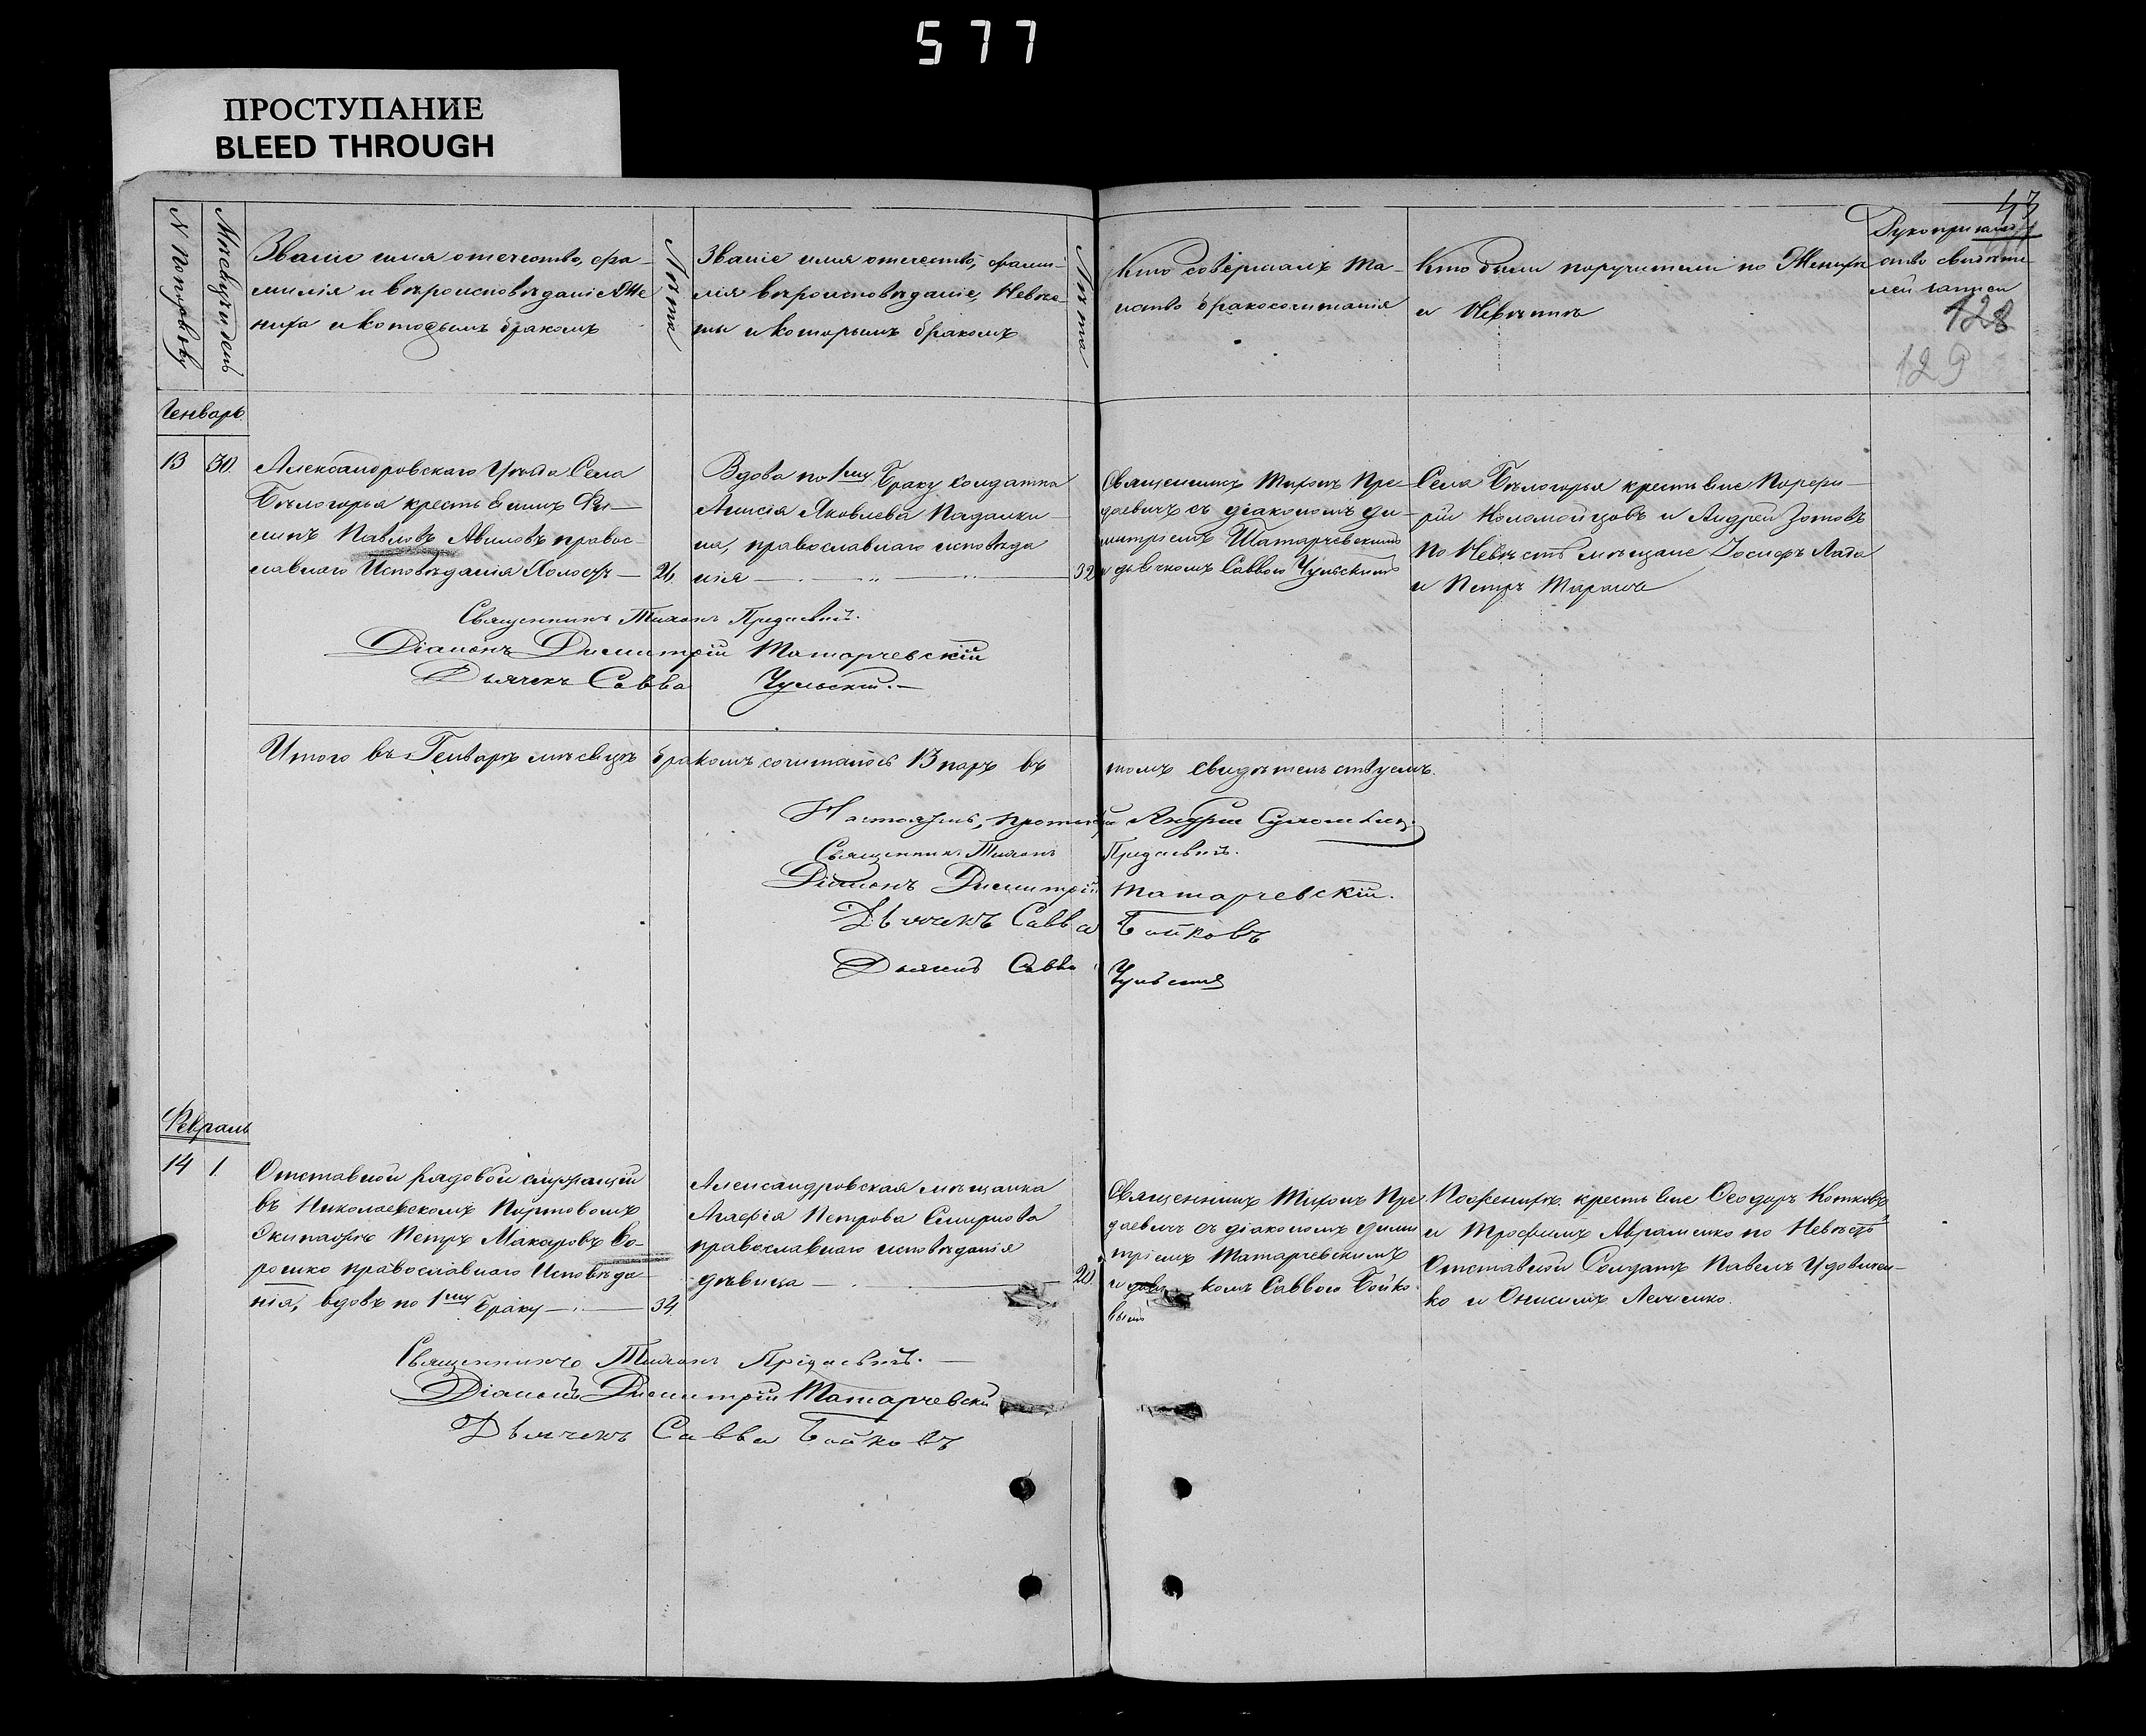 577
ПРОСТУПАНИЕ
BLEED THROUGH
43
N По порядку
Месяцъ и день
Званіе имя отечество, фа-
милія и вѣроисповѣданіе Же
ниха и которымъ бракомъ
Лѣта
Званіе имя отечество, фами-
лія вѣроисповѣданіе, Невѣс-
ты и которымъ бракомъ
Лѣта
Кто совершалъ та-
инство бракосочитанія
Кто были поручители по Женихѣ
и Невѣстѣ
Рукоприклад
ство свидѣте
лей записи
128
129
Генварь
13 30.
Александровскаго Уѣзда Села
Бѣлогорья крестьянинъ Фи-
липъ Павловъ Авиловъ правос-
лавнаго Исповѣданія Холостъ — 21,
Вдова по 1му Браку солдатка
Анисія Яковлева Падалки-
на, православнаго исповѣда
нія — 32
Священникъ Тихонъ Пре-
даевичъ съ діакономъ Ди-
митріемъ Татарчевскимъ
и дьячкомъ Саввою Чульскимъ
Села Бѣлогорья крестьяне Порфи-
рій Коломойцовъ и Андрей Зотовъ
по Невѣстѣ мѣщане Іосифъ Лата
и Петръ Таранъ
Священникъ Тихонъ Предаевичъ.
Діаконъ Димитрій Татарчевскій
Дьячекъ Савва Чульскій.
Итого въ Генварѣ мѣсяцѣ бракомъ сочиталось 13 паръ въ томъ свидѣтельствуемъ.
Настоятель, протоіерей Андрей
Священникъ Тихонъ Предаевичъ.
Діаконъ Димитрій Татарчевскій.
Дьячекъ Савва Бойковъ
Дьячекъ Савва Чульскій
Февраль
14 1.
Отставной рядовой служащій
въ Николаевскомъ Портовомъ
Экипажѣ Петръ Макаровъ Во-
рошко православнаго Исповѣда
нія, вдовъ по 1му Браку — 34.
Александровская мѣщанка
Агафія Петрова Смирнова
православнаго исповѣданія
дѣвица — 20
Священникъ Тихонъ Пре
даевичъ съ діакономъ Дими
тріемъ Татарчевскимъ
и дьячкомъ Саввою Бойко
вымъ
По женихѣ крестьяне Ѳеодоръ Котковъ
и Трофимъ Авраменко по Невѣстѣ
Отставной Солдатъ Павелъ Удовичен-
ко и Онисимъ Левченко.
Священникъ Тихонъ Предаевичъ.
Діаконъ Димитрій Татарчевскій
Дьячекъ Савва Бойковъ